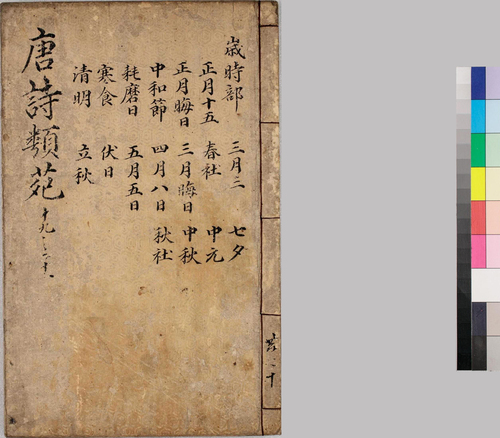 歲時部 三月三 七夕
正月十五 春社 中元
正月晦日 三月晦日 中秋
中和節 四月八日 秋社
耗磨日 五月五日
寒食 伏日
清明 立秋
唐詩類苑 十九之二十